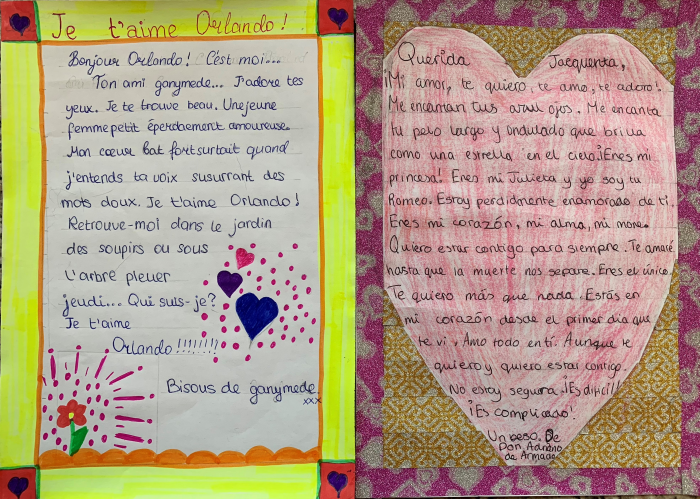 Je t'aime Orlando!
Bonjour Orlando! C'est moi...
Ton ami ganymede... J'adore tes
yeux. Je te trouve beau. Une jeune
femme petit éperdaement amoureuse.
Mon cœur bat fort surtait quand
j'entends ta voix susurrant des
mots doux. Je t'aime Orlando!
Retrouve-moi dans le jardin
des soupirs ou sous
l'arbre pleuer
jeudi... Qui suis-je?
Je t'aime
Orlando!!!!!!!!
Bisous de ganymede
xxx
Querida Jacquenta,
¡Mi amor, te quiero, te amo, te adoro!
Me encantan tus azul ojos. Me encanta
tu pelo largo y undulado que brilla
como una estrella en el cielo.¡Eres mi
princesa! Eres mi Julieta y yo soy tu
Romeo. Estoy perdidmente enamorado de ti.
Eres mi corazón, mi alma, mi more.
Quiero estar contigo para siempre. Te amaré
hasta que la muerte nos separe. Eres el único.
Te quiero más que nada. Estás en
mi corazón desde el primer dia que
te vi. Amo todo en ti. Aunque te
quiero y quiero estar contigo.
No estoy segura. ¡Es dificil!
¡Es complicado!
Un beso. De
Don Adriano
de Armado.